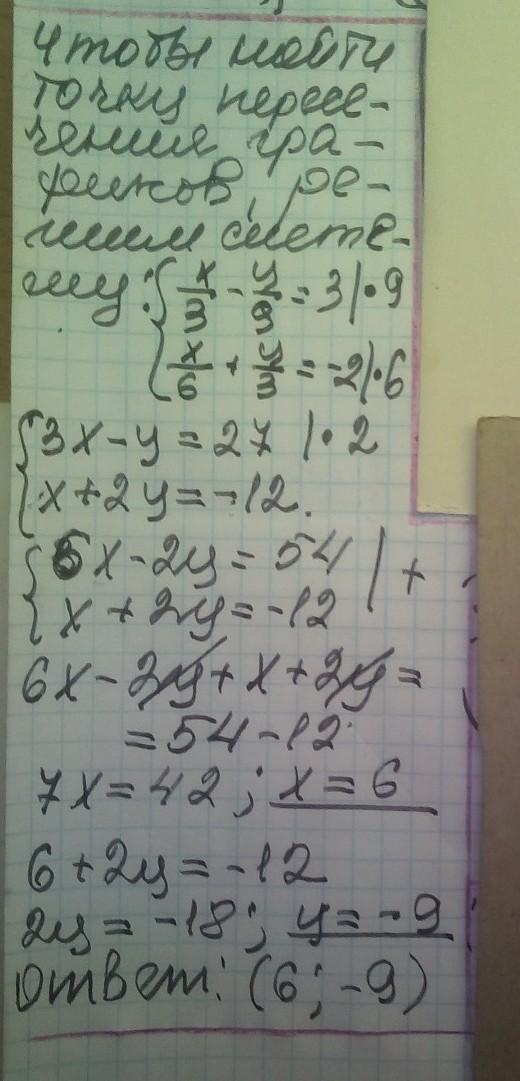 Чтобы найти
точку пересе-
чения гра-
фиков, ре-
шим систе-
му: { x/3 - y/9 = 3 | · 9
x/6 + y/3 = -2 | · 6
{ 3x - y = 27 | · 2
x + 2y = -12.
{ 6x - 2y = 54 | +
x + 2y = -12
6x - 2y + x + 2y =
= 54 - 12
7x = 42 ; x = 6
6 + 2y = -12
2y = -18 ; y = -9
Ответ: (6; -9)